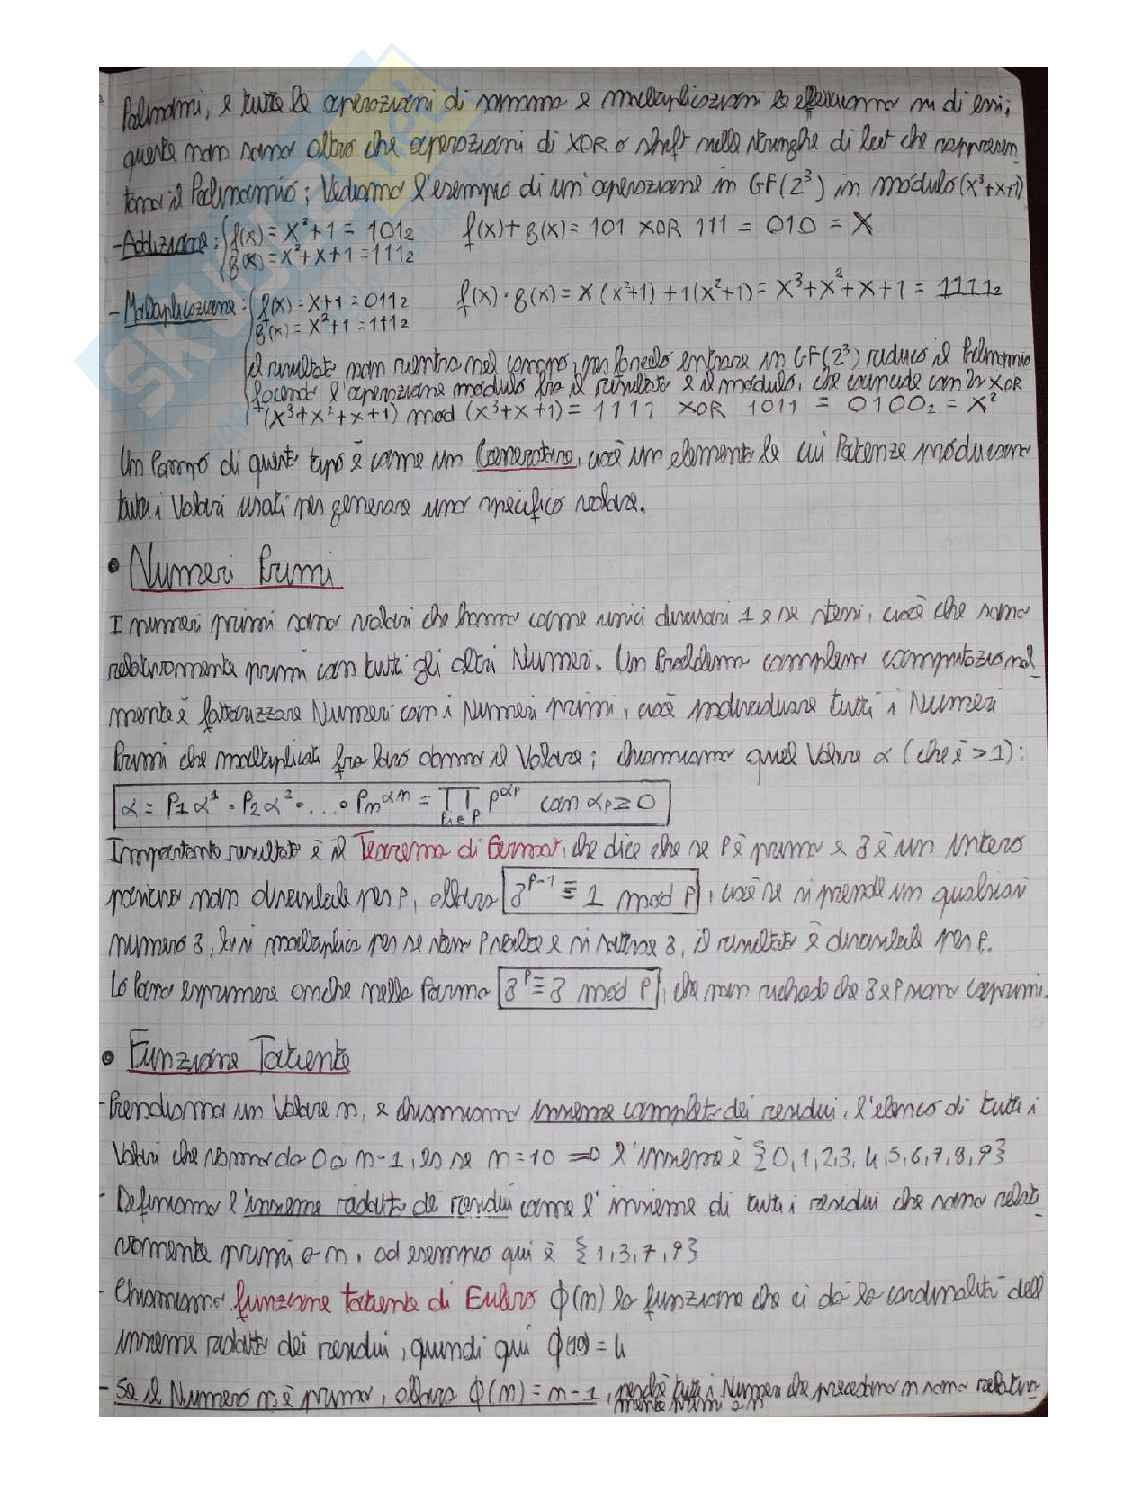 Polinomi, e tutte le operazioni di somma e moltiplicazioni le effettuiamo su di essi;
queste non sono altro che operazioni di XOR o shift nelle stringhe di bit che rappresen_
tano il Polinomio; Vediamo l'esempio di un'operazione in GF(2³) in modulo (x³+x+1)
-Addizione: f(x) = x²+1 = 101₂ f(x)+g(x) = 101 XOR 111 = 010 = X
g(x) = x²+x+1 = 111₂
-Moltiplicazione: f(x) = x+1 = 011₂ f(x)·g(x) = x(x²+1)+1(x²+1) = x³+x²+x+1 = 1111₂
g(x) = x²+1 = 111₂
il risultato non rientra nel campo, per farcelo entrare in GF(2³) riduco il Polinomio
facendo l'operazione modulo tra il risultato e il modulo, che coincide con lo XOR
(x³+x²+x+1) mod (x³+x+1) = 1111 XOR 1011 = 0100₂ = x²
Un campo di questo tipo è come un Generatore, cioè un elemento le cui Potenze producono
tutti i Valori usati per generare uno specifico valore.
• Numeri Primi
I numeri primi sono valori che hanno come unici divisori 1 e se stessi, cioè che sono
relativamente primi con tutti gli altri Numeri. Un Problema complesso computazional_
mente è fattorizzare Numeri con i Numeri primi, cioè individuare tutti i Numeri
Primi che moltiplicati fra loro danno il Valore; chiamiamo quel Valore α (che è >1):
α = P₁α¹ · P₂α² · ... · Pₙαⁿ = ∏ Pᵅᵖ con αₚ≥0
Pi∈P
Importante risultato è il Teorema di Fermat, che dice che se P è primo e a è un intero
positivo non divisibile per P, allora aᵖ⁻¹ ≡ 1 mod P, cioè se si prende un qualsiasi
numero a, lo si moltiplica per se stesso P volte e si sottrae a, il risultato è divisibile per P.
Lo posso esprimere anche nella forma aᵖ ≡ a mod P, che non richiede che a e P siano coprimi.
• Funzione Totiente
-Prendiamo un Valore n, e chiamiamo insieme completo dei residui, l'elenco di tutti i
Valori che vanno da 0 a n-1, es se n=10 => l'insieme è {0,1,2,3,4,5,6,7,8,9}
- Definiamo l'insieme ridotto de residui come l'insieme di tutti i residui che sono relati_
vamente primi a n, ad esempio qui è {1,3,7,9}
- Chiamiamo funzione totiente di Eulero ϕ(n) la funzione che ci dà la cardinalità dell'
insieme ridotto dei residui, quindi qui ϕ(10) = 4
- Se il Numero n è primo, allora ϕ(n) = n-1, perchè tutti i Numeri che precedono n sono relativa_
mente primi a n